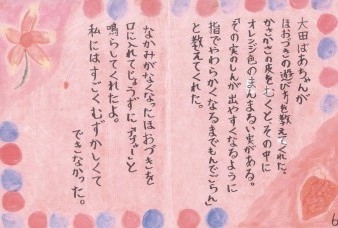 太田ばあちゃんが
ほおづきの遊び方を教えてくれた。
かさかさの皮をむくと、その中に
オレンジ色のまんまるい実がある。
その実のしんが出やすくなるように
指でやわらかくなるまでもんでごらん」
と教えてくれた。
なかみがなくなったほおづきを
口に入れてじょうずに
鳴らしてくれたよ。
私にはすごくむずかしくて
できなかった。
6